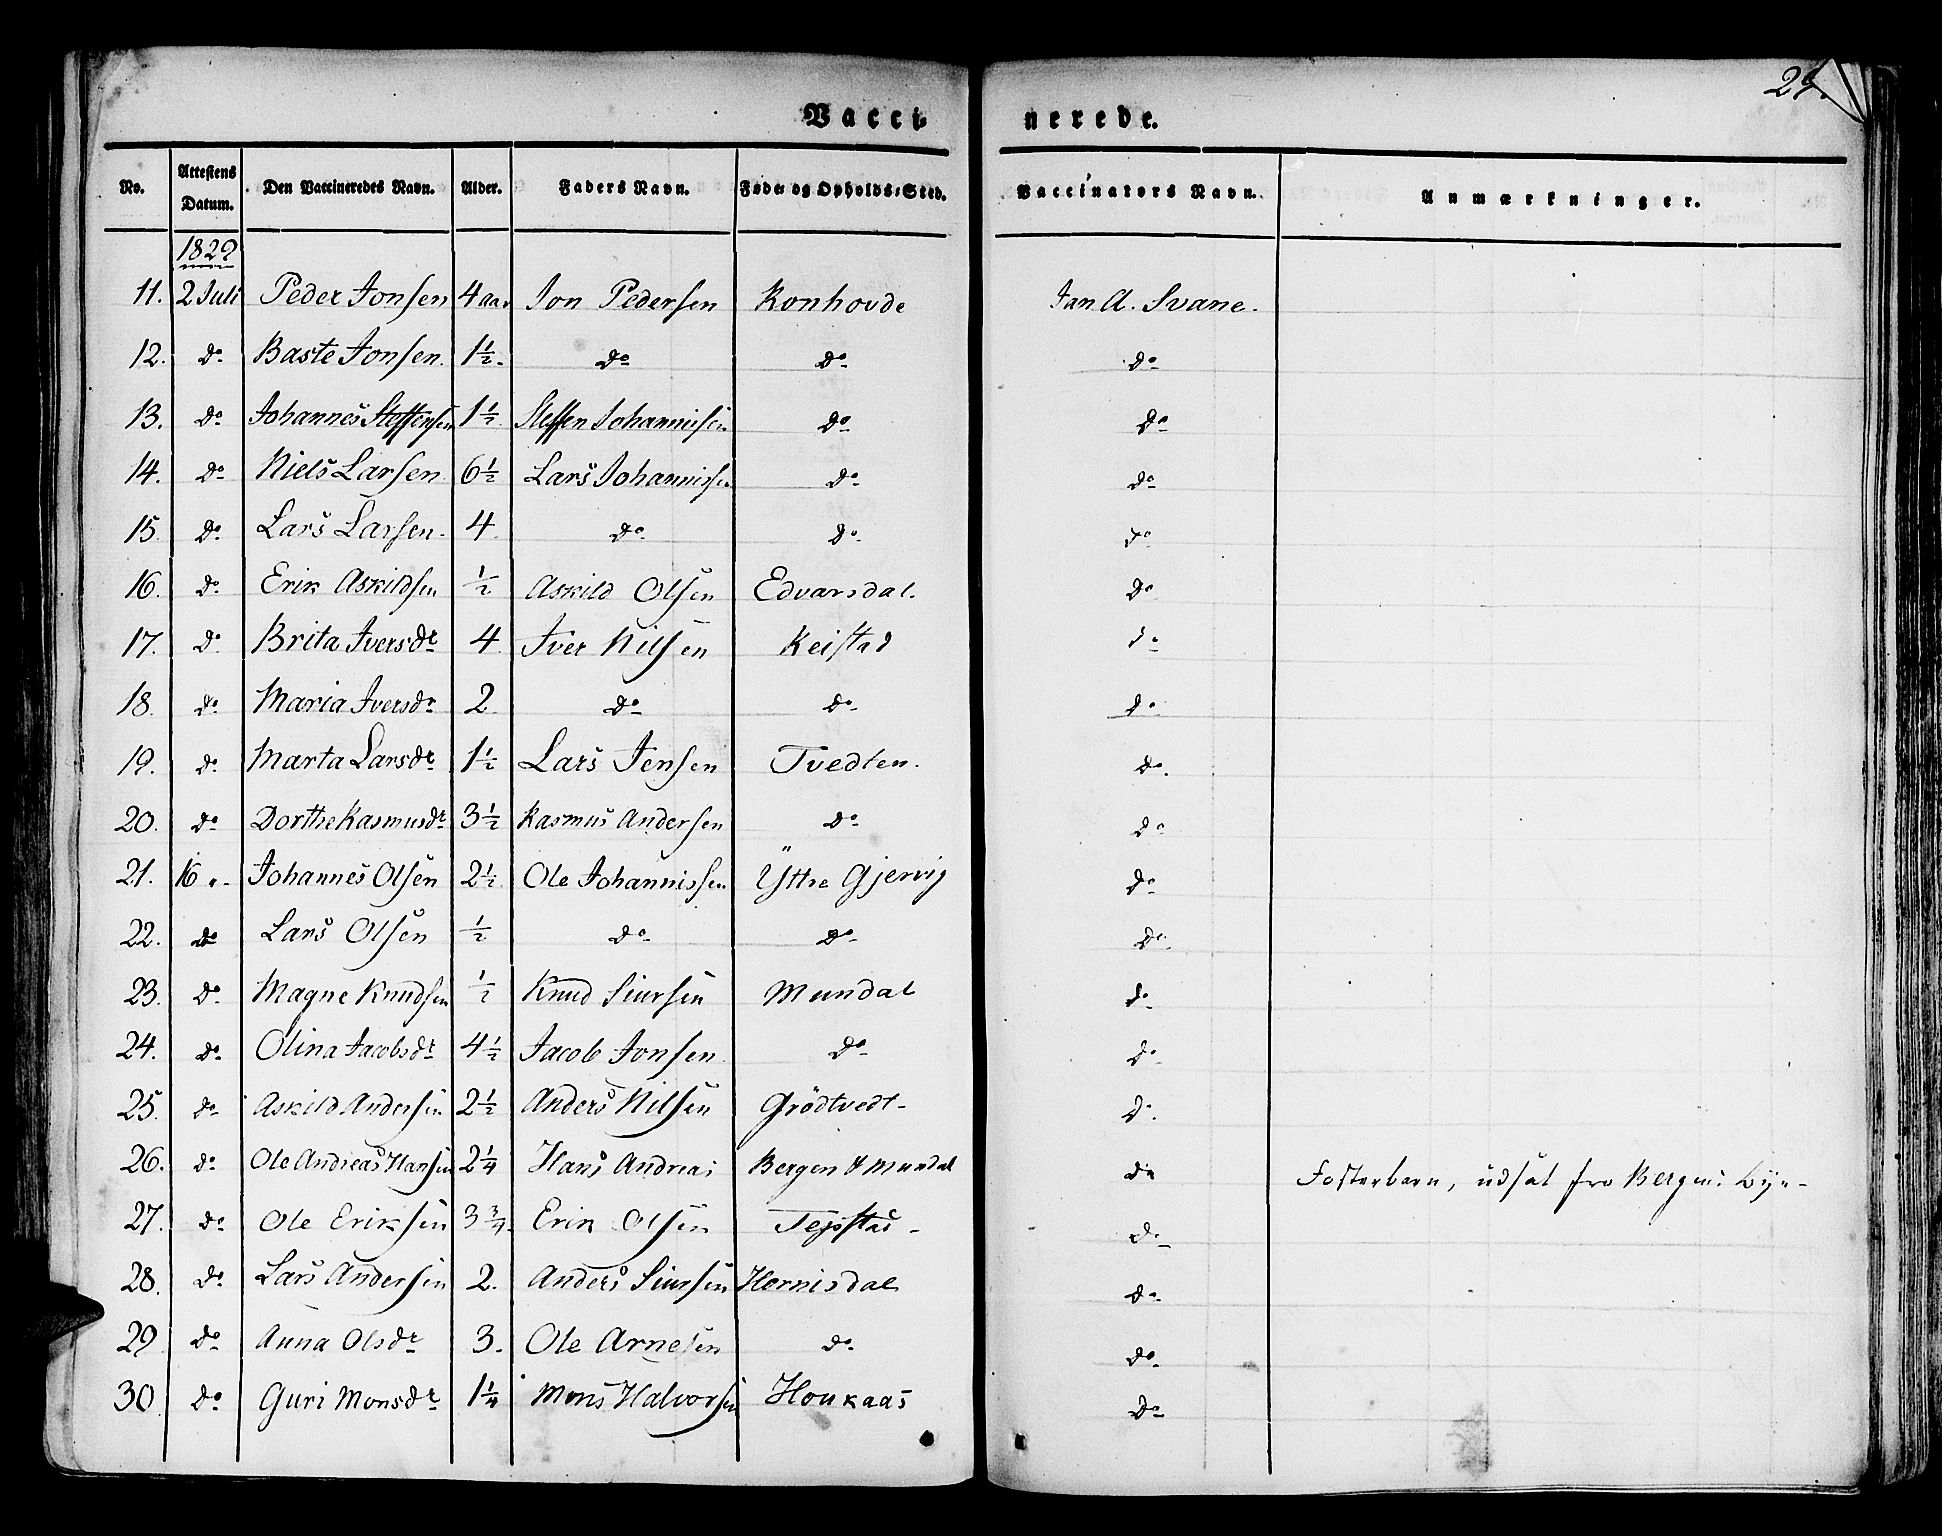 29.
Vacci- nerede.
No. Attestens Datum. Den Vaccineredes Navn. Alder. Faders Navn. Føde- og Opholds-Sted. Vaccinators Navn. Anmærkninger.
1829
11. 2 Juli Peder Jonsen 4 aar Jon Pedersen Ronhovde Jan A. Svane.
12. do Baste Jonsen. 1½. do do do
13. do Johannes Steffensen 1½. Steffen Johannissen do do
14. do Niels Larsen 6½ Lars Johannissen do do
15. do Lars Larsen. 4 do do do
16. do Erik Askildsen ½ Askild Olsen Edvarsdal. do
17. do Brita Iversdr 4 Iver Nilsen Keistad do
18. do Maria Iversdr 2 do do do
19. do Marta Larsdr 1½ Lars Jensen Tvedten. do
20. do Dorthe Rasmusdr 3½ Rasmus Andersen do do
21. 16 " Johannes Olsen 2½ Ole Johannissen Yttre Gjervig do
22. do Lars Olsen ½ do do do
23. do Magne Knudsen ½ Knud Siursen Mundal do
24. do Olina Jacobsdr 4½ Jacob Jonsen do do
25. do Askild Andersen 2½ Anders Nilsen Grödtvedt do
26. do Ole Andreas Hansen 2¼ Hans Andreas Bergen & Mundal do Fosterbarn, udsat fra Bergens Bye
27. do Ole Eriksen 3¾ Erik Olsen do
28. do Lars Andersen 2. Anders Siursen Hornisdal do
29 do Anna Olsdr 3. Ole Arnesen do do
30 do Guri Monsdr 1¼ Mons Halvorsen Houkaas do